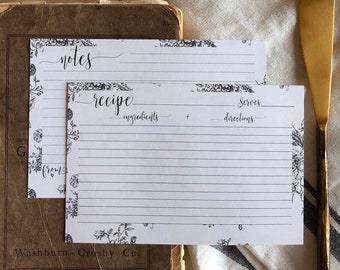 notes
recipe Serves
ingredients + directions
from
Washburn-Crosby Co.